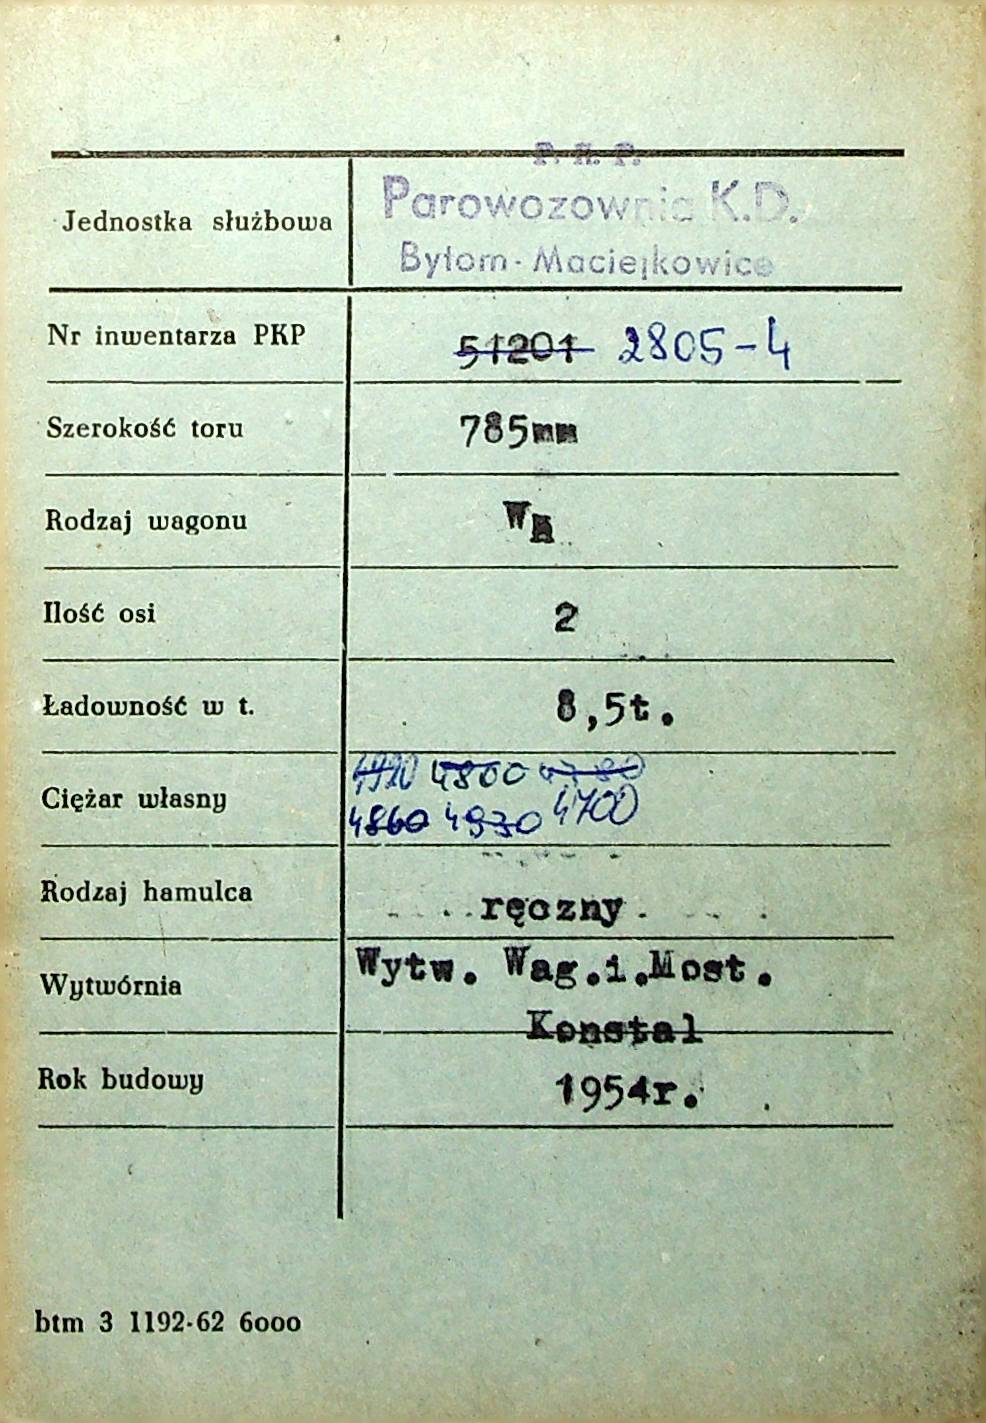 P. K. P.
Parowozownia K.D.
Jednostka służbowa
Bytom-Maciejkowice
Nr inwentarza PKP 51201 2805-4
Szerokość toru 785mm
Rodzaj wagonu
Ilość osi 2
Ładowność w t. 8,5t.
4800
Ciężar własny
4860 4930 4700
Rodzaj hamulca ręczny
Wytw. Wag.i.Most.
Wytwórnia
Konstal
Rok budowy 1954r.
btm 3 1192-62 6000